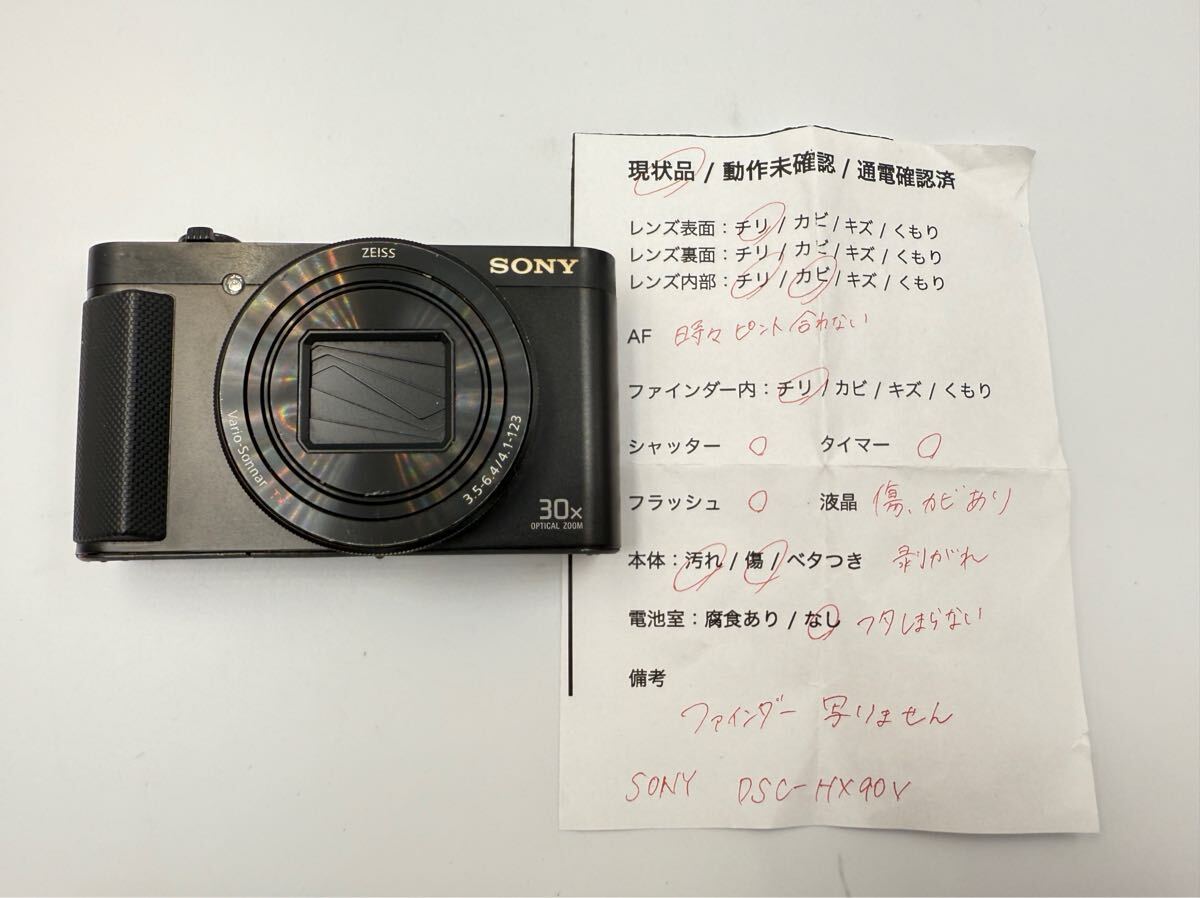 ZEISS
SONY
Vario-Sonnar T*
3.5-6.4/4.1-123
30x
OPTICAL ZOOM
現状品 / 動作未確認 / 通電確認済
レンズ表面：チリ / カビ / キズ / くもり
レンズ裏面：チリ / カビ / キズ / くもり
レンズ内部：チリ / カビ / キズ / くもり
AF 時々ピント合わない
ファインダー内：チリ / カビ / キズ / くもり
シャッター ○ タイマー ○
フラッシュ ○ 液晶 傷、カビあり
本体：汚れ / 傷 / ベタつき 剥がれ
電池室：腐食あり / なし フタしまらない
備考
ファインダー 写りません
SONY DSC-HX90V